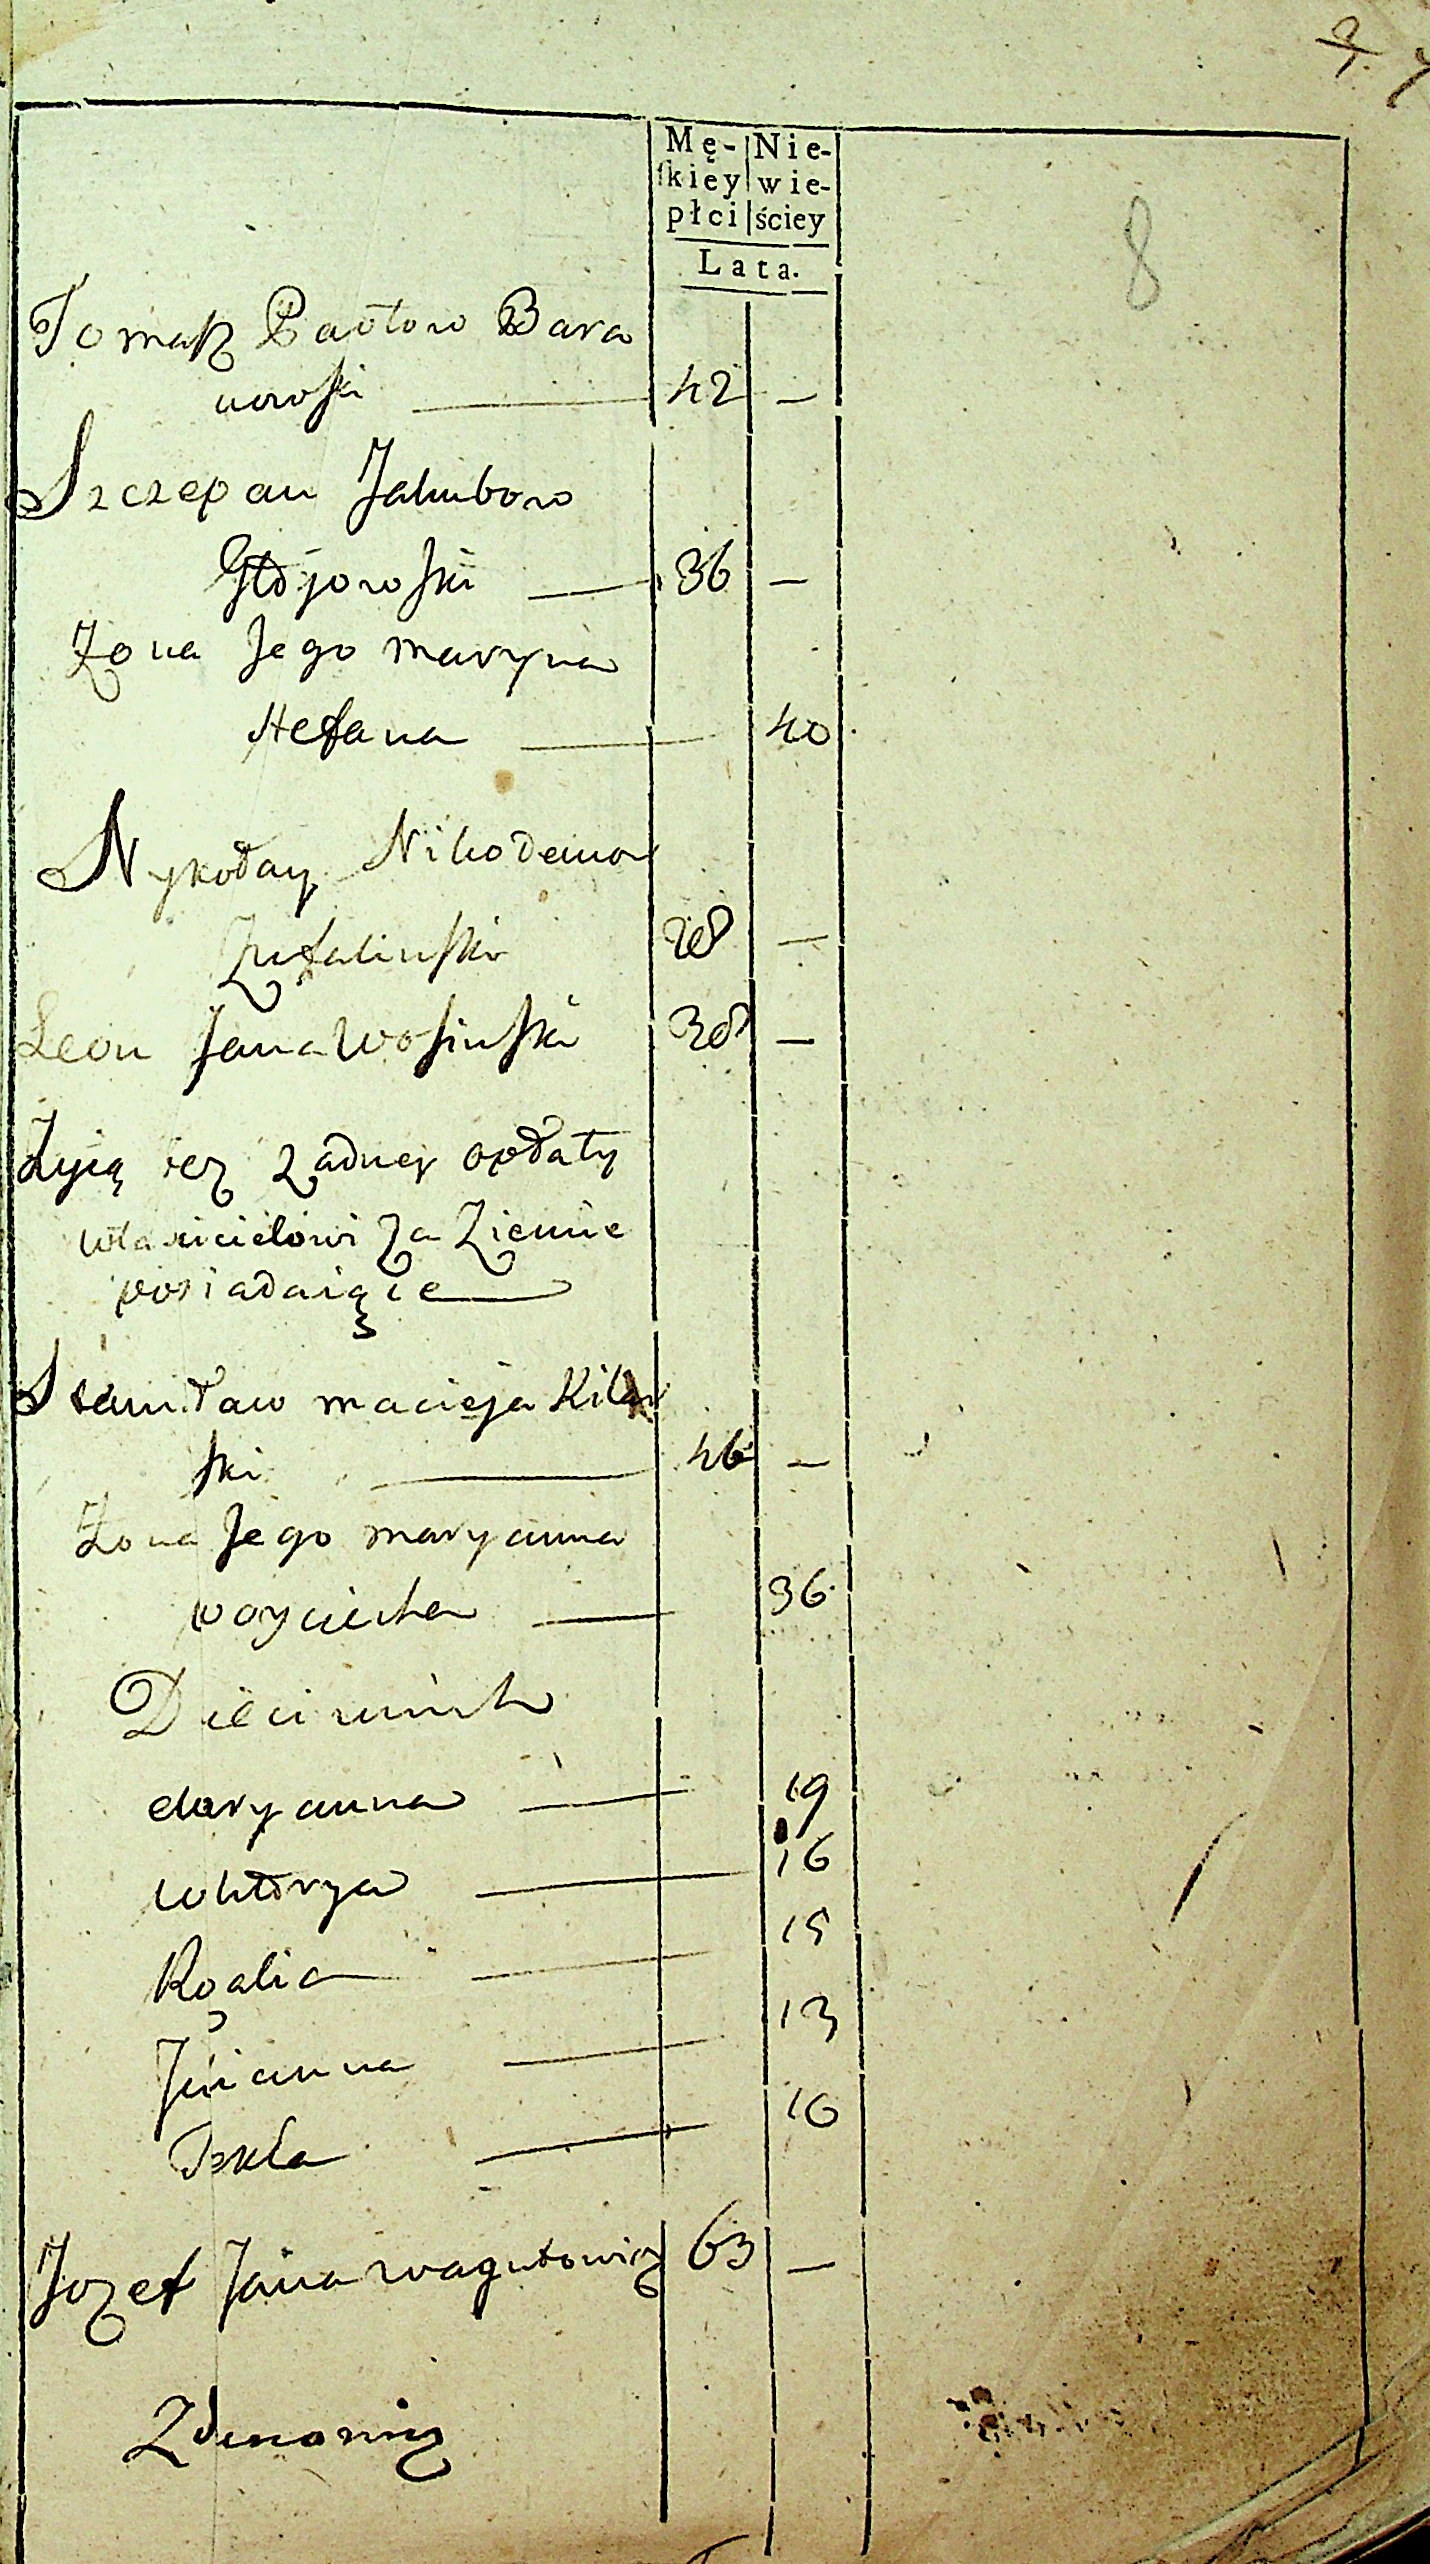 8
Mę- Nie-
skiey wie-
płci ściey
Lata.
Tomasz Pawłow Bara
nowski 42 —
Szczepan Jakubow
Głojowski 36 —
Żona Jego maryna
Stefana 40
Nykołay Nikodemow
28 —
Leon Jana Wosinski 38 —
Żyią bez żadney opłaty
właścicielowi za Ziemie
posiadaiące
Stanisław macieja Kilar
ski 46 —
Żona Jego maryanna
woyciecha 36
Dzieci u nich
Maryanna 19
Wiktorya 16
Rozalia 15
Julianna 13
Tekla 10
Jozef Jana wagutowicz 63 —